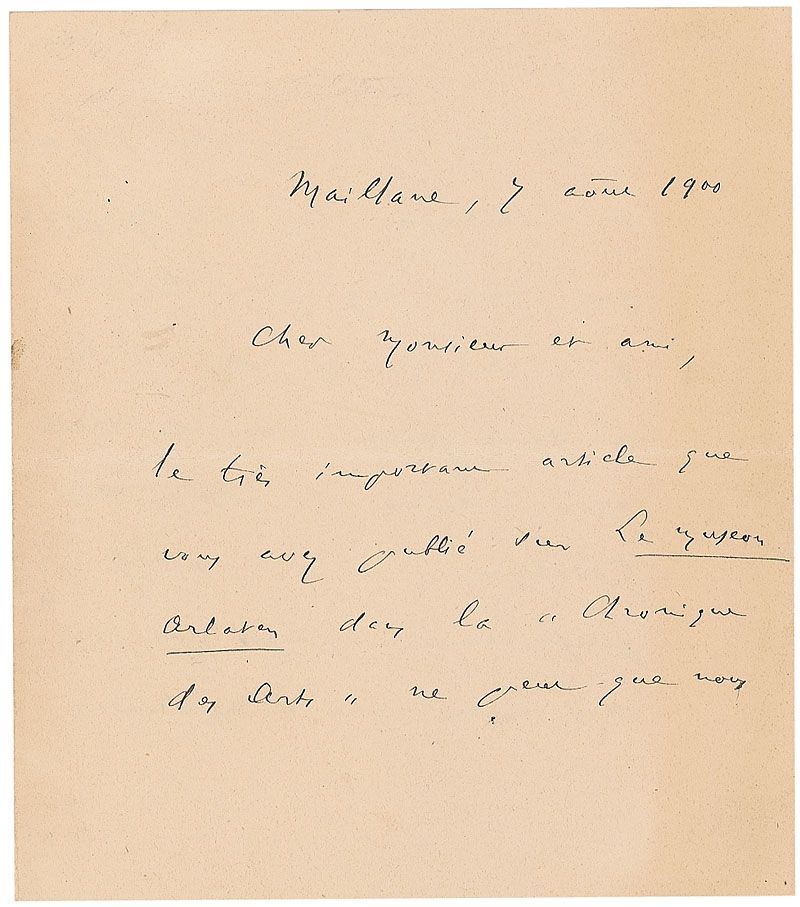 Maillane, 7 août 1900
Cher Monsieur et ami,
le très important article que
vous avez publié sur Le Museon
Arlaten dans la " Chronique
des Arts " ne peut que nous